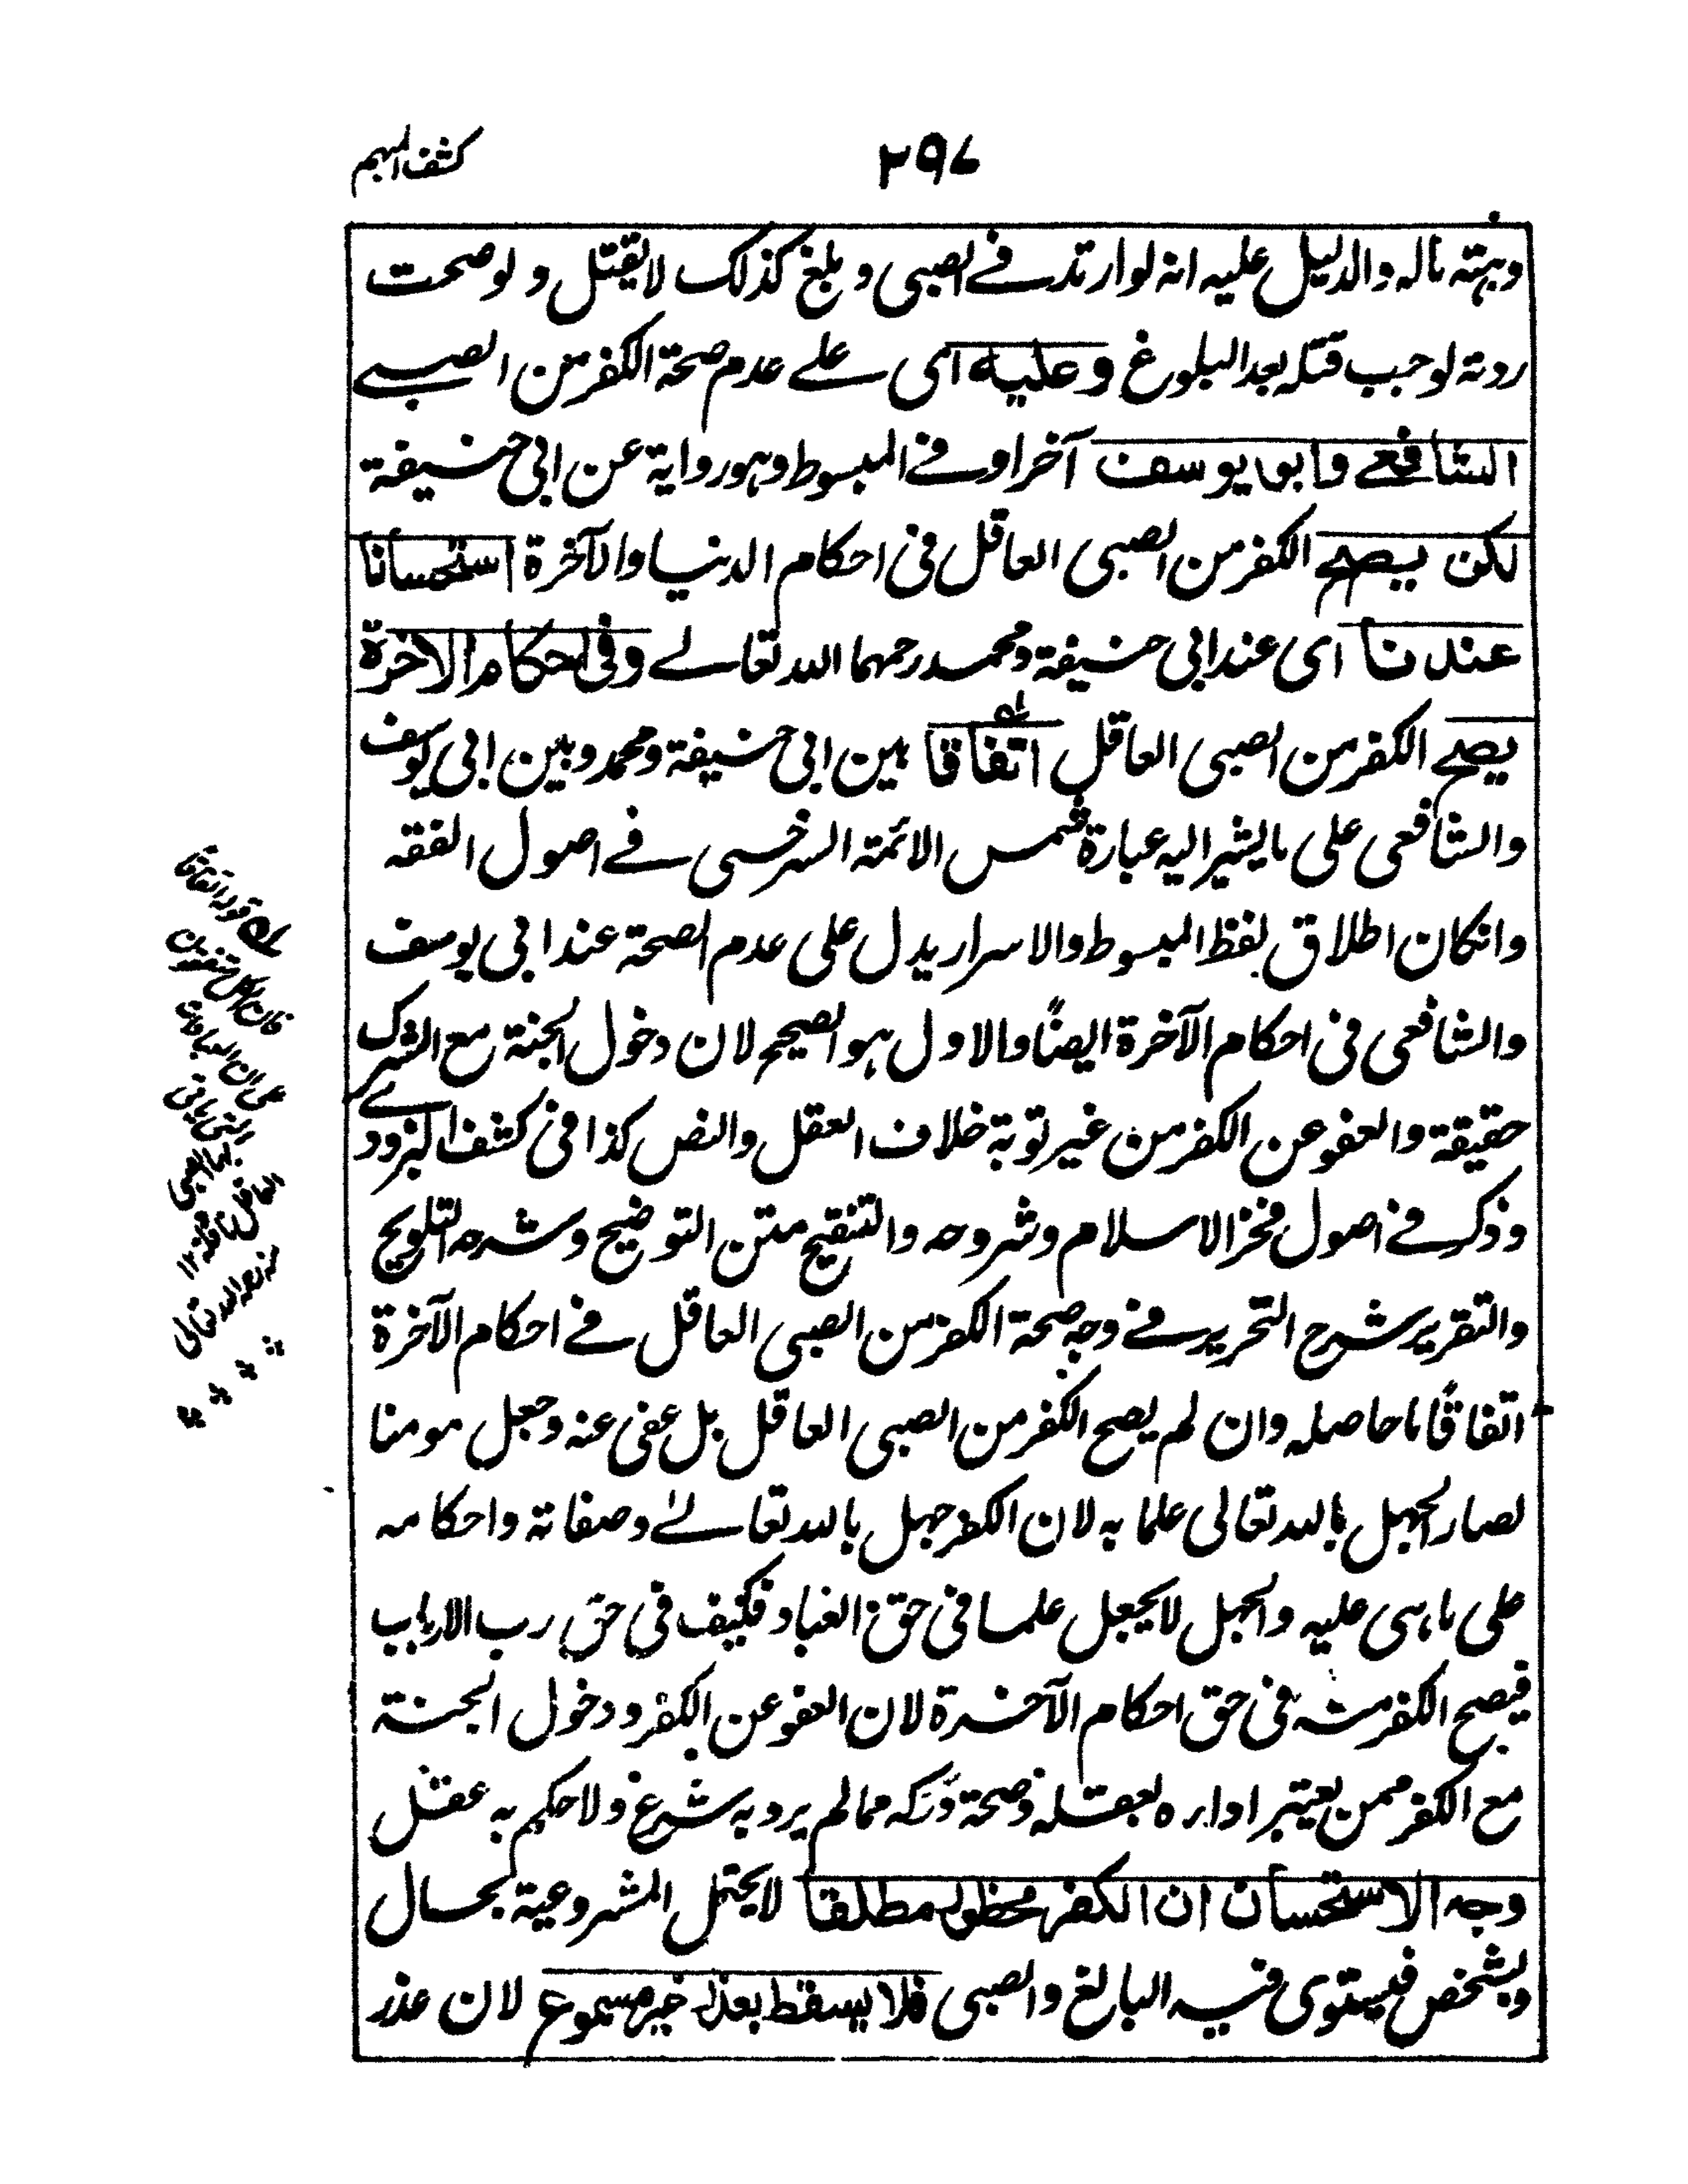 كشف المبهم
٢٩٧
وهبته ماله والدليل عليه انه لو ارتد في الصبى و بلغ كذلك لا يقتل و لو صحت
ردته لوجب قتله بعد البلوغ وعليه اى على عدم صحة الكفر من الصبى
الشافعي وابو يوسف آخرا وفي المبسوط وهو رواية عن ابي حنيفة
لكن يصح الكفر من الصبى العاقل فى احكام الدنيا والآخرة استحسانا
عندنا اى عند ابى حنيفة ومحمد رحمهما الله تعالى وفى احكام الاخرة
يصح الكفر من الصبى العاقل اتفاقا بين ابى حنيفة ومحمد وبين ابى يوسف
والشافعى على ما يشير اليه عبارة شمس الائمة السرخسى في اصول الفقه
وانكان اطلاق لفظ المبسوط والاسرار يدل على عدم الصحة عند ابى يوسف
والشافعى فى احكام الآخرة ايضًا والاول هو الصحيح لان دخول الجنة مع الشرك
حقيقة والعفو عن الكفر من غير توبة خلاف العقل والنص كذا فى كشف البزودي
وذكر في اصول فخر الاسلام وشروحه والتنقيح متن التوضيح وشرحه التلويح
والتقرير شرح التحرير في وجه صحة الكفر من الصبى العاقل في احكام الآخرة
اتفاقًا ما حاصله وان لم يصح الكفر من الصبى العاقل بل عفى عنه وجعل مومنا
لصار الجهل بالله تعالى علما به لان الكفر جهل بالله تعالى وصفاته واحكامه
على ما هى عليه والجهل لا يجعل علما فى حق العباد فكيف فى حق رب الارباب
فيصح الكفر منه فى حق احكام الآخرة لان العفو عن الكفر و دخول الجنة
مع الكفر ممن يعتبر اداره لعقله وصحة دركه مما لم يرد به شرع ولا حكم به عقل
وجه الاستحسان ان الكفر محظور مطلقا لا يحتمل المشروعية بحال
وبشخص فيستوى فيه البالغ والصبى فلا يسقط بعذر غير مسموع لان عذر
قوله اتفاقا
فان الكل متفقون
على ان العبادات
التى ياتى
بها الصبى
العاقل نافلة ١٢
منه رحمه الله تعالى